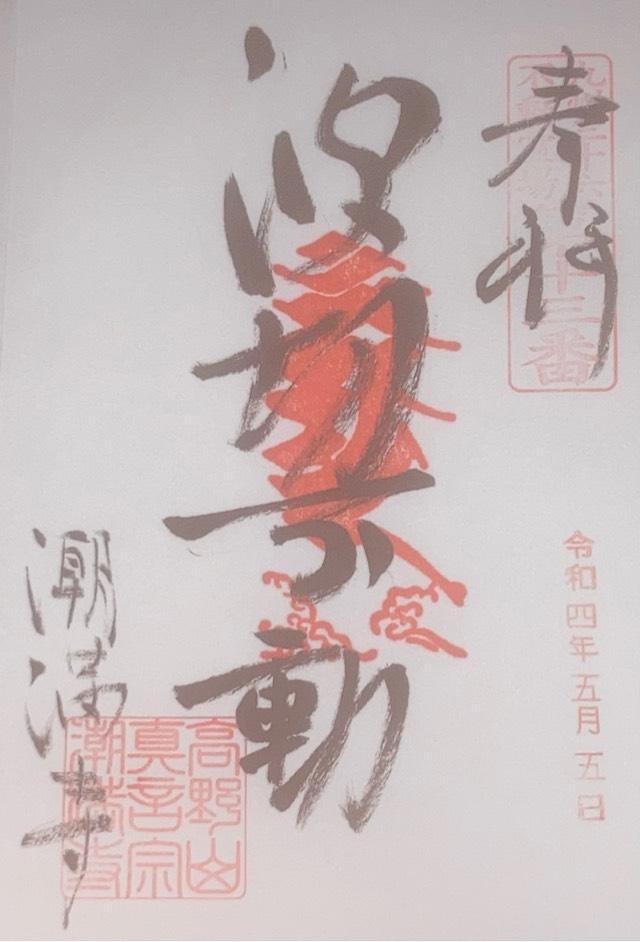 奉拝
十三番
令和四年五月五日
波切不動
潮満寺
高野山
真言宗
潮満寺